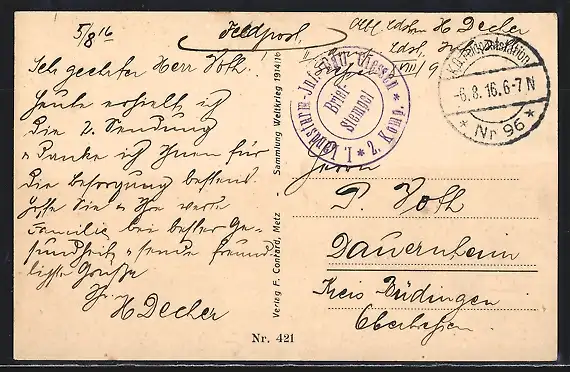 5/8 16
Feldpost
H Decher
Sehr geehrter Herr Voth!
Heute erhielt ich
die 2. Sendung
u danke ich Ihnen für
die Besorgung bestens.
Hoffe Sie u Ihre werte
Familie bei bester Ge-
sundheit u sende freund
ligste Grüße
Ihr
H Decher
I. Landsturm-Inf. Batl. Giessen * 2. Komp. *
Brief-
Stempel
K.D. Feldpoststation
-6.8.16.6-7N
* Nr 96 *
Verlag F. Conrard, Metz - Sammlung Weltkrieg 1914/16
Herrn
P. Voth
Dauernheim
Kreis Büdingen
Oberhessen
Nr. 421